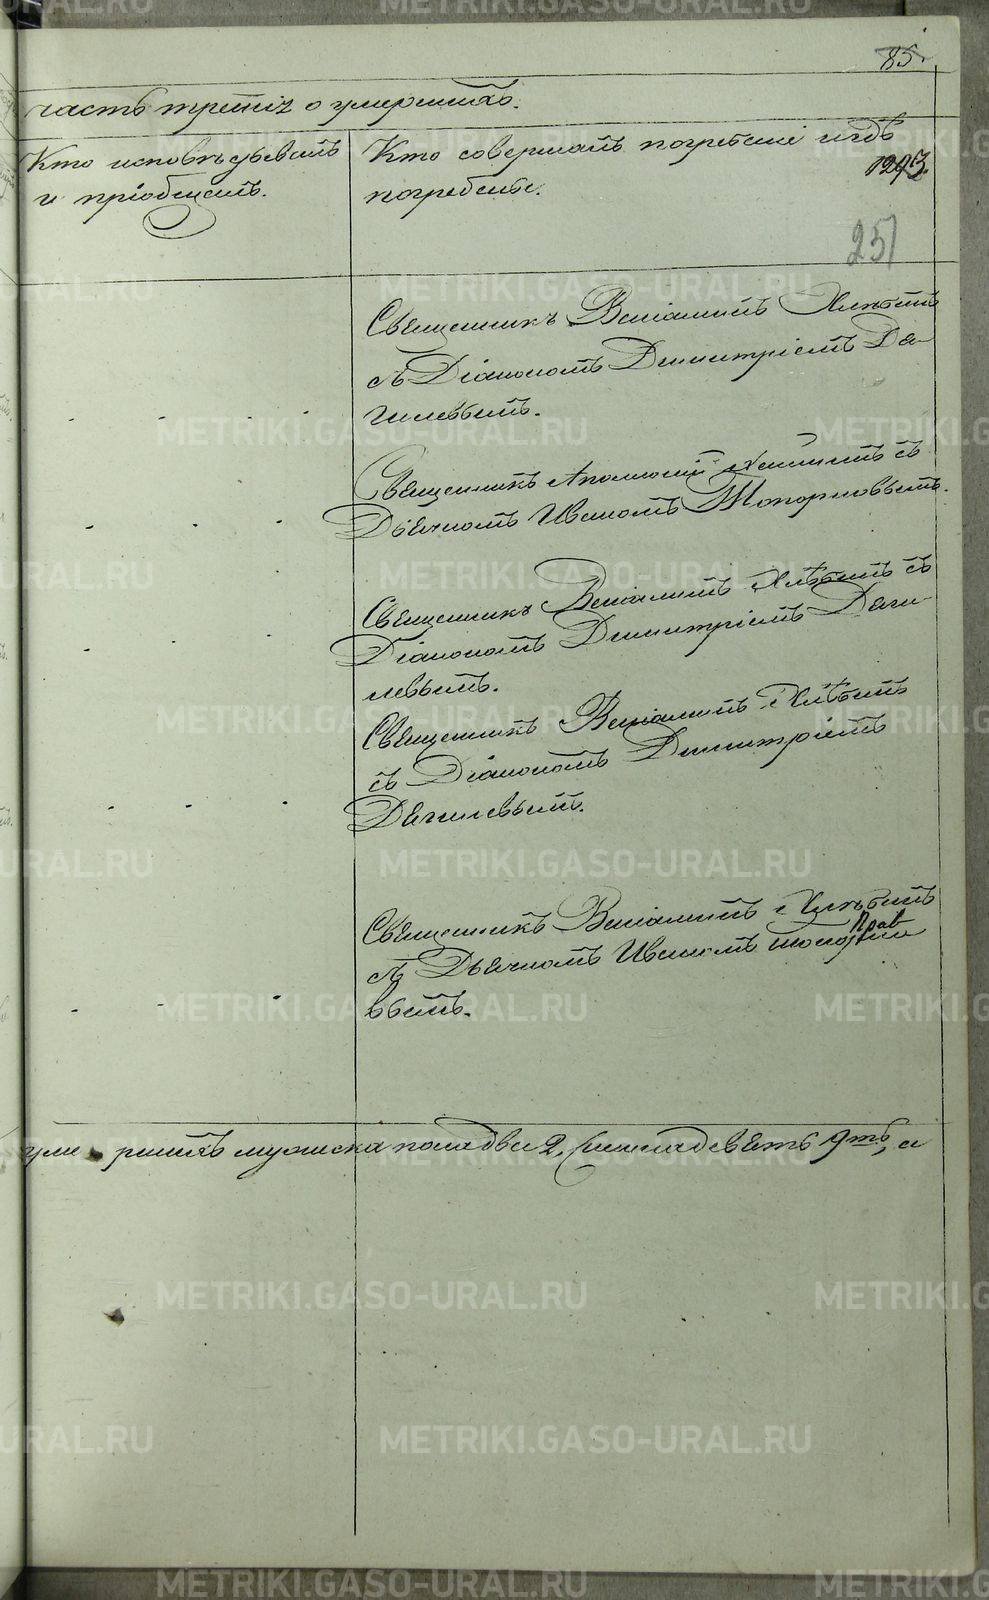 85.
часть третія о умершихъ.
Кто исповѣдывалъ
и пріобщалъ.
Кто совершалъ погребеніе и гдѣ
погребены.
1293.
251
Священникъ Веніаминъ Хлѣбинъ
съ Діакономъ Димитріемъ Дя-
гилевымъ.
Священникъ Аполлоній съ
Дьячкомъ Иваномъ Топорковымъ.
Священникъ Веніаминъ Хлѣбинъ съ
Діакономъ Димитріемъ Дяги-
левымъ.
Священникъ Веніаминъ Хлѣбинъ
съ Діакономъ Димитріемъ
Дягилевымъ.
Священникъ Веніаминъ Хлѣбинъ
съ Дьячкомъ Иваномъ
вымъ.
умершихъ мужска пола два 2, девять 9ть, а
METRIKI.GASO-URAL.RU